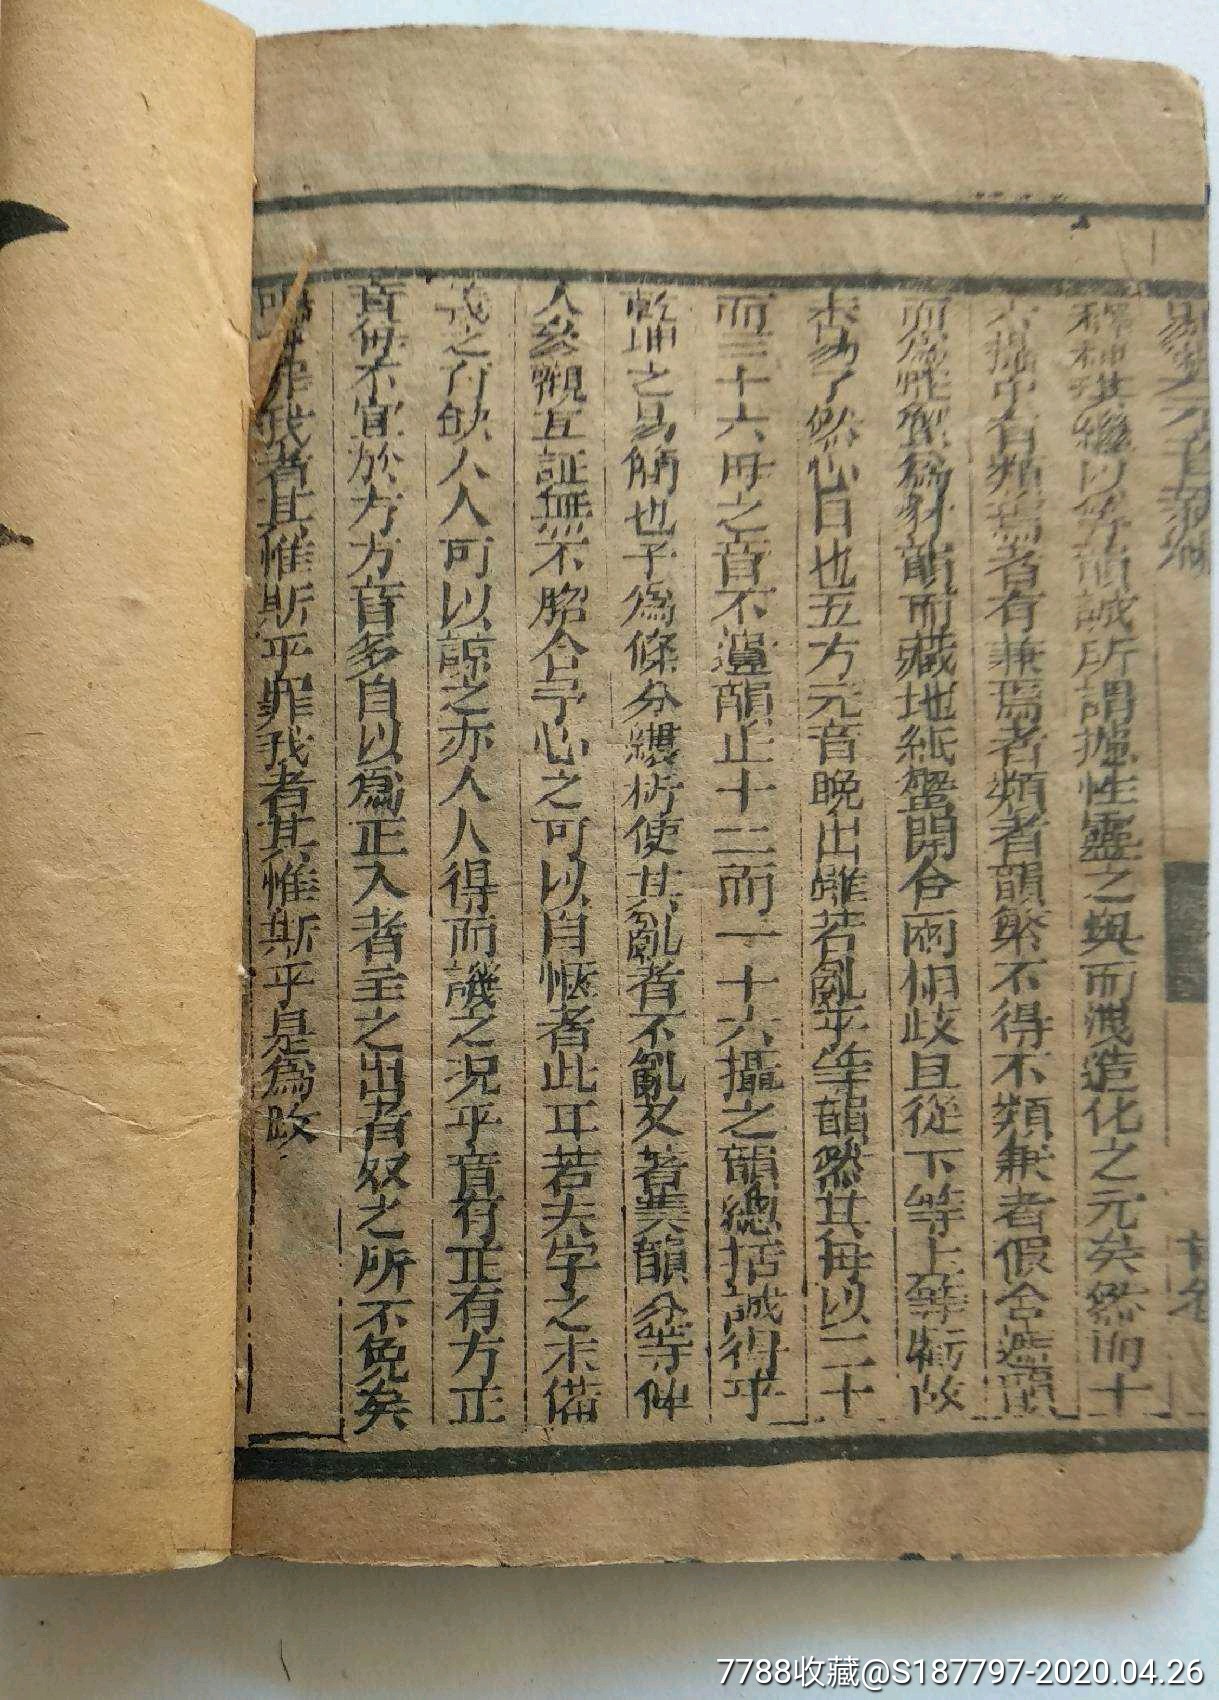 元音
首卷
其繼以等韻誠所謂攄性靈之與而洩造化之元矣然而十
六攝中有類焉者有兼焉者類者韻繁不得不類兼者假含遮韻
而藏地紙盤開合兩相歧且從下等上等
未易了然心目也五方元音晚出雖若亂乎等韻然其母以二十
而三十六母之音不遺韻止十二而一十六攝之韻總括誠得乎
乾坤之易簡也予為條分縷析使其亂者不亂又著其韻分等俾
人參觀互証無不脗合予心之可以自愜者此耳若夫字之未備
義之有缺人人可以諒之亦人人得而譏之況乎音有正有方正
音每不宜於方方音多自以為正入者主之出者奴之所不免矣
罪我者其惟斯乎罪我者其惟斯乎是為
7788收藏@S187797-2020.04.26